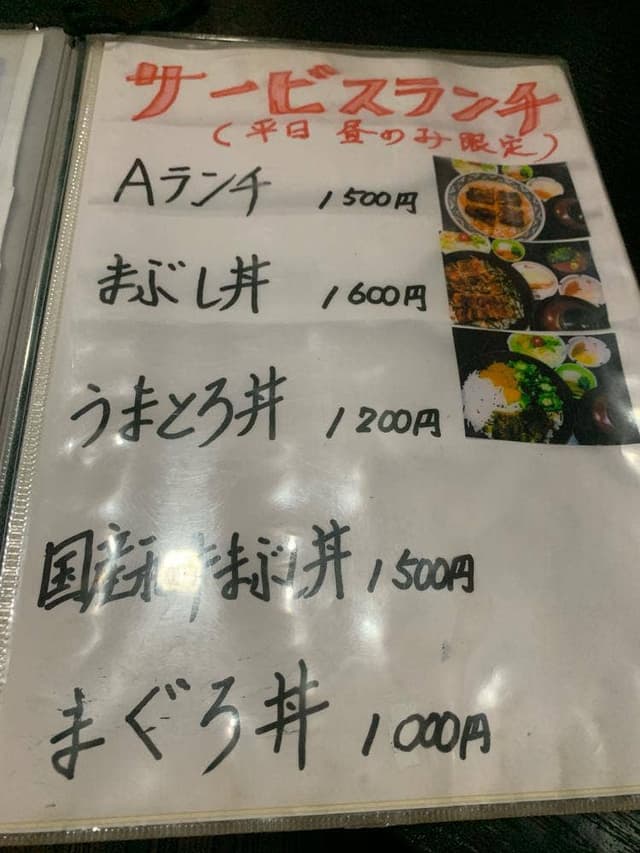 サービスランチ
(平日 昼のみ限定)
Aランチ 1500円
まぶし丼 1600円
うまとろ丼 1200円
国産和牛まぶし丼 1500円
まぐろ丼 1000円